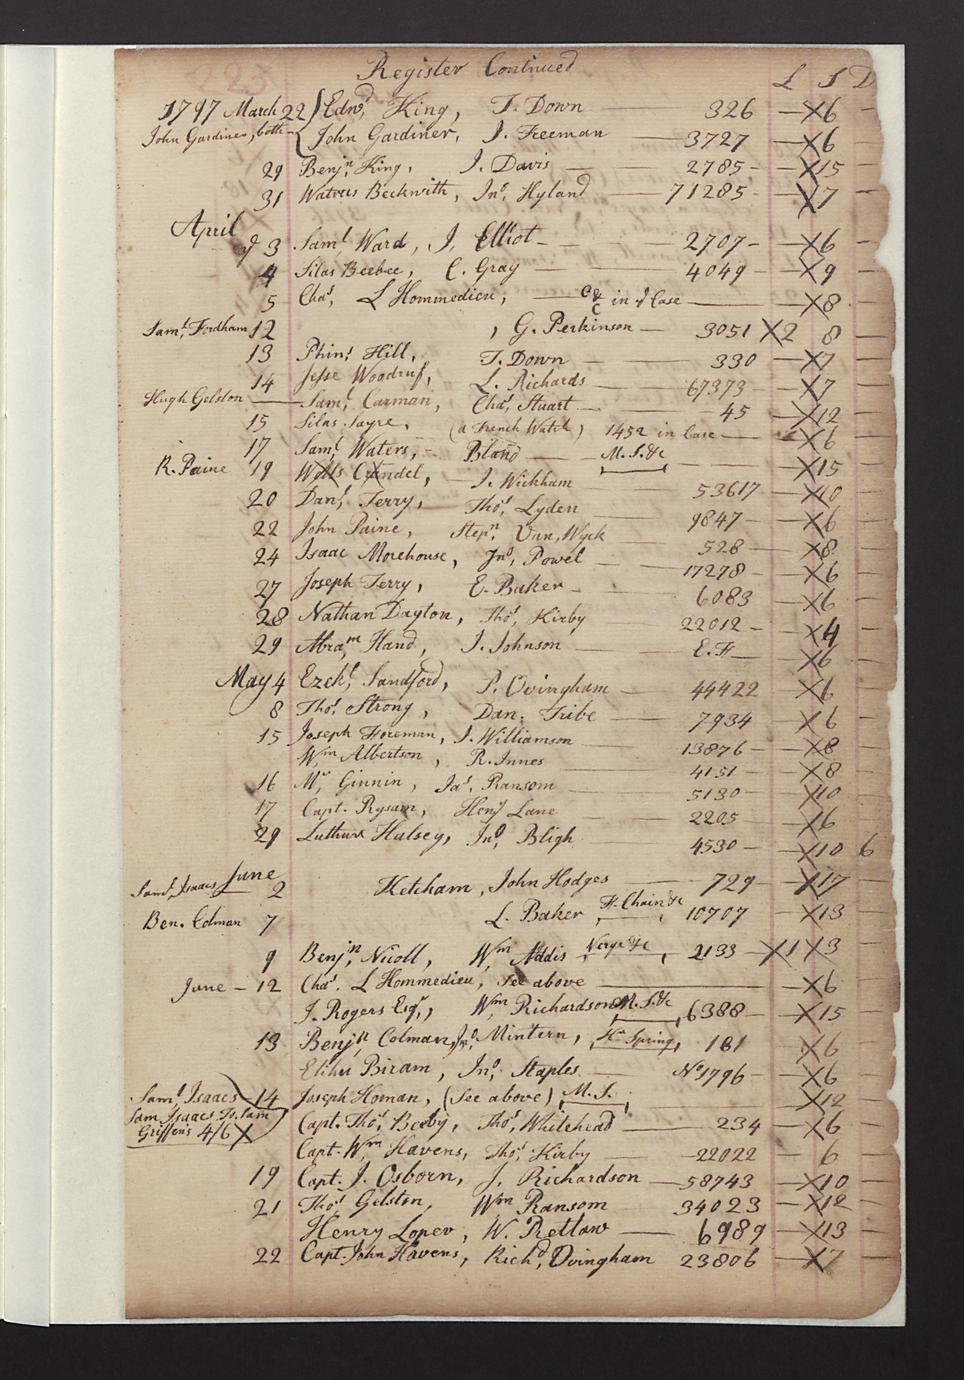 Register Continued
L S D
1797 March 22 Edwd King, T. Down — 326 — X 6
John Gardiner, both John Gardiner, J. Freeman — 3727 — X 6 —
29 Benjn King, I. Davis — 2785 — X 15 —
31 Waters Beckwith, Jno Hyland — 71285 — X 7 —
April
3 Saml Ward, J. Elliot — 2707 — X 6 —
4 Silas Beebee, C. Gray — 4049 — X 9 —
5 Chas L Hommedieu, — in Case — X 8 —
Saml Fordham 12 , G. Perkinson — 3051 X 2 8 —
13 Phins Hill, T. Down — 330 — X 7 —
14 Jesse Woodruf, L. Richards — 67373 — X 7 —
Hugh Gelston — Saml Carman, Chas Stuart — 45 — X 12 —
15 Silas Sayre, (a French Watch) 1452 in Case — X 6 —
17 Saml Waters, — Bland — M. S. &c — X 15 —
R. Paine 19 Crandel, — J. Wickham — 53617 — X 10 —
20 Danl Terry, Thos Lyden — 9847 — X 6 —
22 John Paine, Stepn Van Wyck — 528 — X 8 —
24 Isaac Morehouse, Jno Powel — 17298 — X 6 —
27 Joseph Terry, E. Baker — 6083 — X 6 —
28 Nathan Dayton, Thos Kirby — 22012 — X 4 —
29 Abram Hand, J. Johnson — E. F — X 6 —
May 4 Ezekl Sandford, P. Ovingham — 44422 X 6 —
8 Thos Strong, Dan. Tribe — 7934 — X 6 —
15 Joseph Foreman, J. Williamson — 13876 — X 8 —
Wm Albertson, R. Innes — 4151 — X 8 —
16 Mr Ginnin, Jas Ransom — 5130 — X 10 —
17 Capt. Rysam, Heny Lane — 2205 — X 6 —
29 Luthur Halsey, Jno Bligh — 4530 — X 10 6
June
Saml Isaacs 2 Ketcham, John Hodges — 729 — X 17 —
Ben. Colman 7 L. Baker Chain &c 10707 — X 13 —
9 Benjn Nicoll, Wm Addis, Verge &c, 2133 — X 1 X 3 —
June — 12 Chas L Hommedieu, See above — X 6 —
J. Rogers Esqr, Wm Richardson M. S. &c, 6388 — X 15 —
13 Benjn Colman, Jno Mintern, Spring, 181 X 6 —
Elihu Biram, Jno Staples — No 1796 — X 6 —
Saml Isaacs 14 Joseph Homan, (See above) M. S. — X 12 —
Sam. Isaacs Sam
Griffens 4/6 X
Capt. Thos Beeby, Thos Whitehead — 234 — X 6 —
Capt. Wm Havens, Thos Kirby — 22022 — 6 —
19 Capt. J. Osborn, J. Richardson — 58743 — X 10 —
21 Thos Gelston, Wm Ransom — 34023 — X 12 —
Henry Loper, W. Retlaw — 6989 — X 13 —
22 Capt. John Havens, Richd Ovingham 23806 — X 7 —